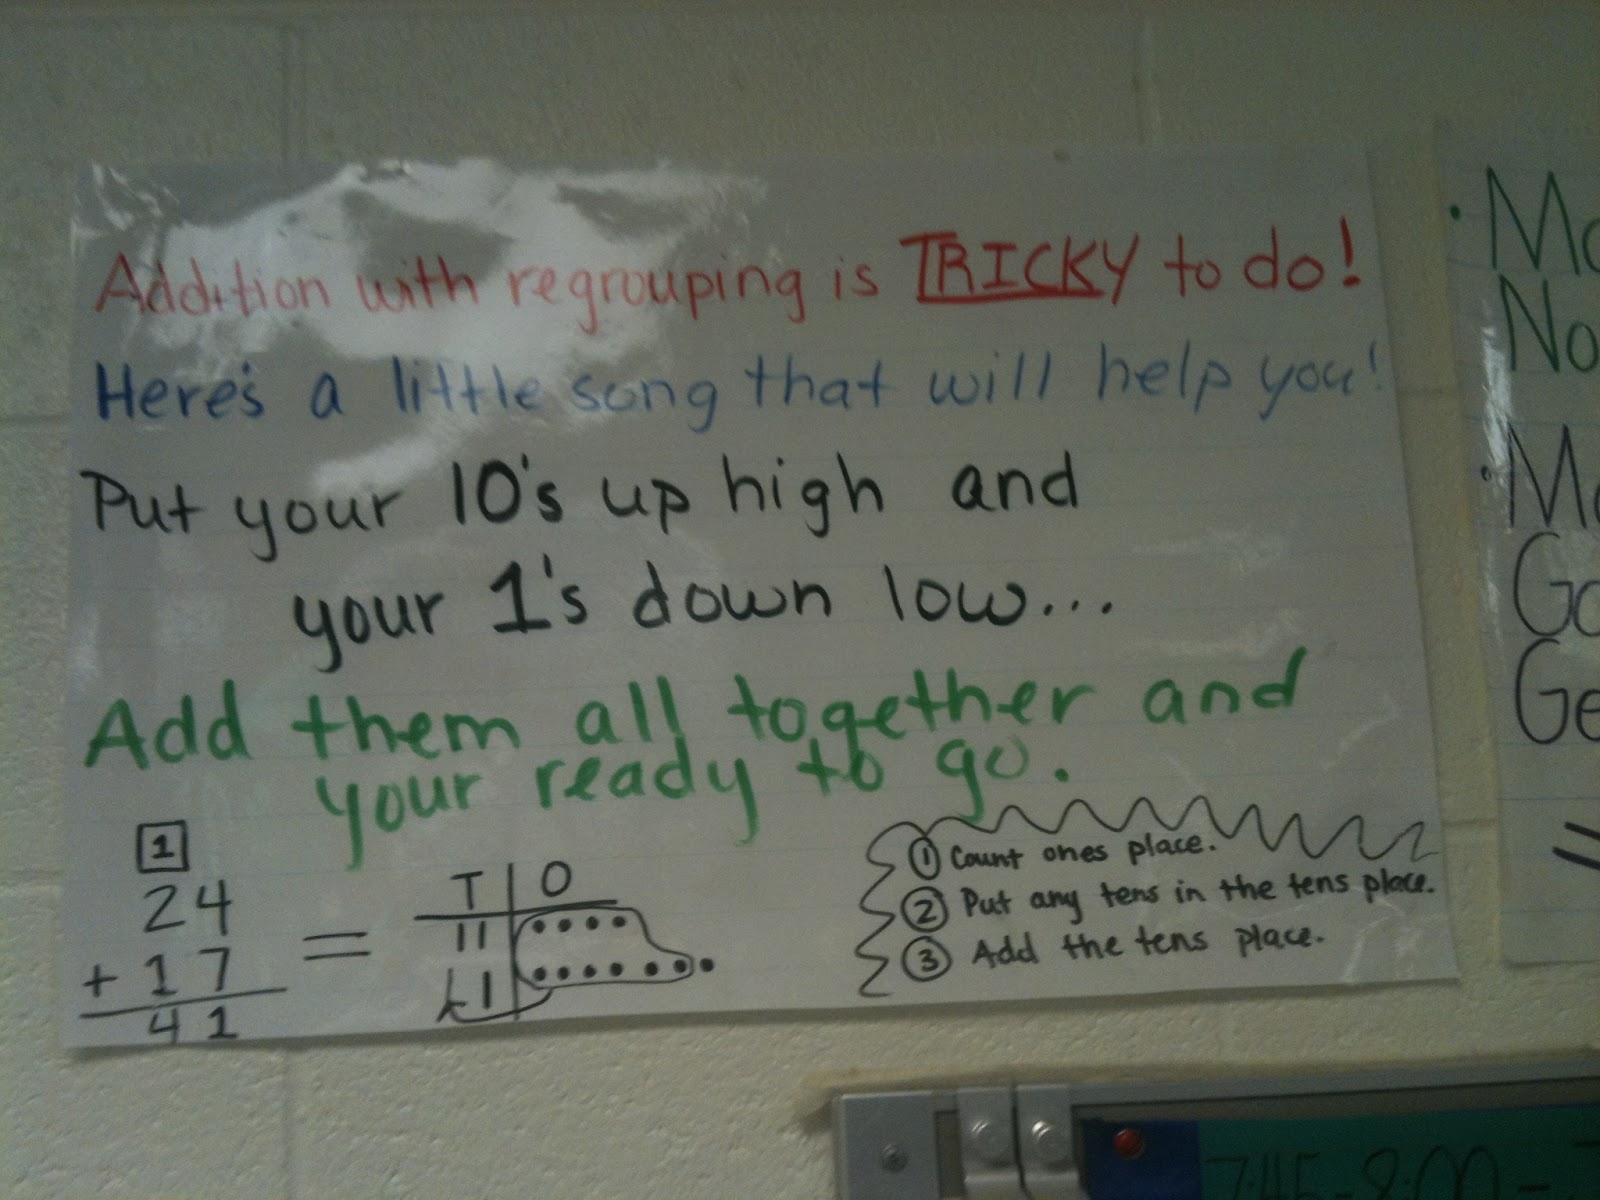 Addition with regrouping is TRICKY to do!
Here's a little song that will help you!
Put your 10's up high and
your 1's down low...
Add them all together and
your ready to go.
1
24
+ 17
41
=
T O
① Count ones place.
② Put any tens in the tens place.
③ Add the tens place.
7:45-8:00 -